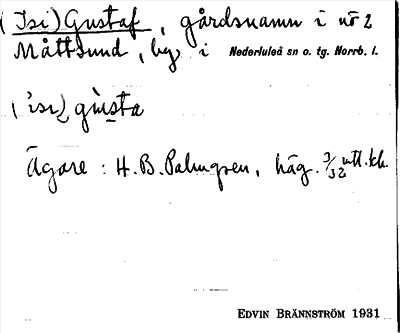 (Isi) Gustaf, gårdsnamn i nr 2
Måttsund, by, i Nederluleå sn o. tg. Norrb. l.
('isi) gùsta
Ägare: H. B. Palmgren, häg. 3/32 mtl.
EDVIN BRÄNNSTRÖM 1931